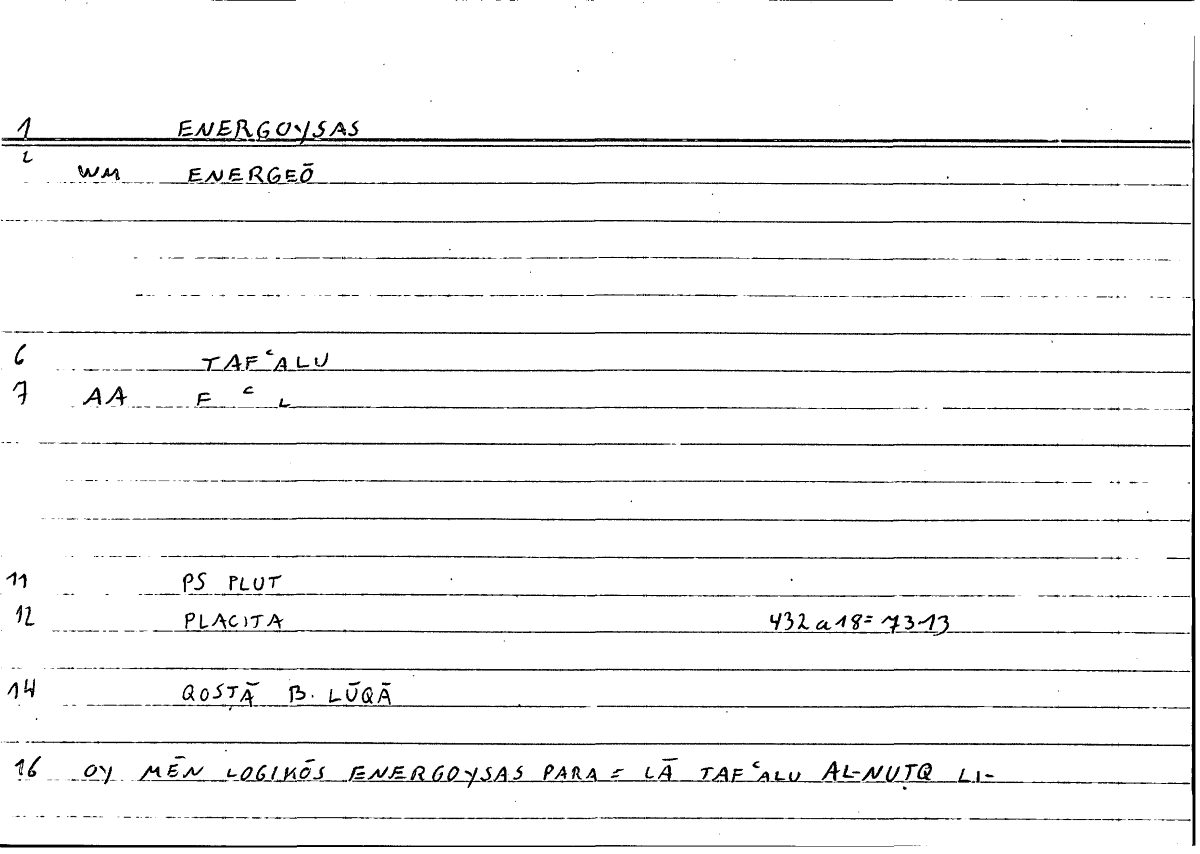 1 ENERGOYSAS
2 WM ENERGEŌ
6 TAFᶜALU
7 AA F ᶜ L
11 PS PLUT
12 PLACITA 432a18=73-13
14 QOSṬĀ B. LŪQĀ
16 OY MĒN LOGIKŌS ENERGOYSAS PARA = LĀ TAFᶜALU AL-NUṬQ LI-